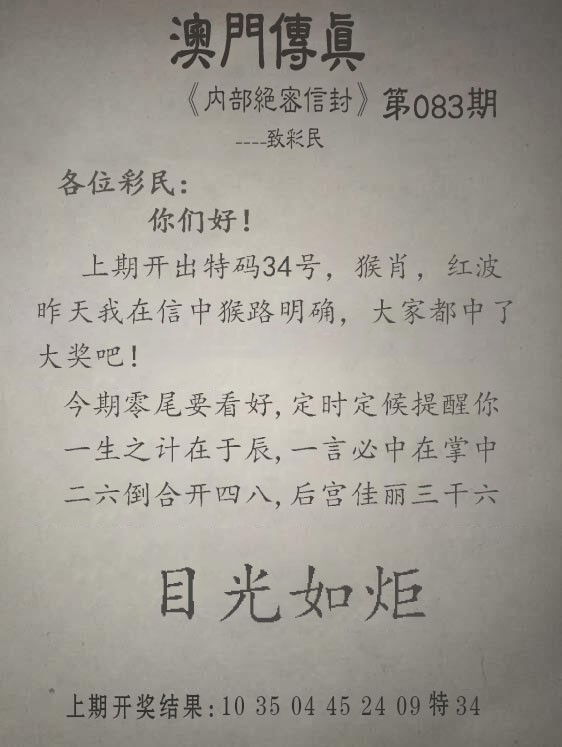 澳門傳眞
《内部絕密信封》第083期
----致彩民
各位彩民:
你们好!
上期开出特码34号,猴肖,红波
昨天我在信中猴路明确,大家都中了
大奖吧!
今期零尾要看好,定时定候提醒你
一生之计在于辰,一言必中在掌中
二六倒合开四八,后宫佳丽三干六
目光如炬
上期开奖结果:10 35 04 45 24 09 特 34